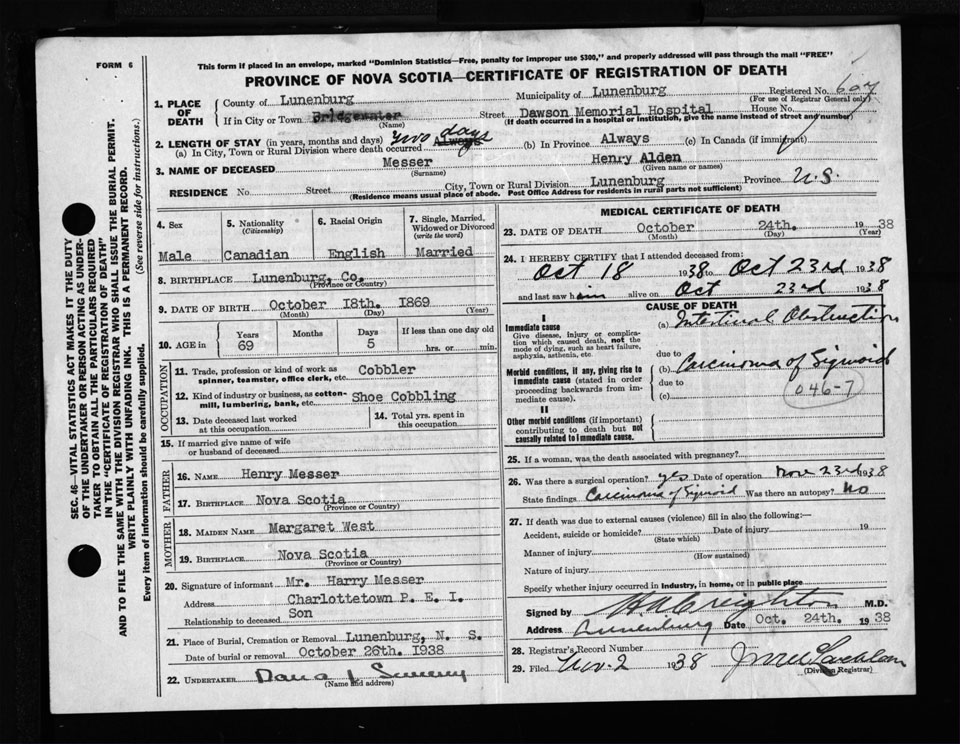 FORM 6
This form if placed in an envelope, marked "Dominion Statistics—Free, penalty for improper use $300," and properly addressed will pass through the mail "FREE"
PROVINCE OF NOVA SCOTIA—CERTIFICATE OF REGISTRATION OF DEATH
SEC. 46—VITAL STATISTICS ACT MAKES IT THE DUTY
OF THE UNDERTAKER OR PERSON ACTING AS UNDER-
TAKER TO OBTAIN ALL THE PARTICULARS REQUIRED
IN THE "CERTIFICATE OF REGISTRATION OF DEATH"
AND TO FILE THE SAME WITH THE DIVISION REGISTRAR WHO SHALL ISSUE THE BURIAL PERMIT.
WRITE PLAINLY WITH UNFADING INK. THIS IS A PERMANENT RECORD.
Every item of information should be carefully supplied. (See reverse side for instructions.)
1. PLACE OF DEATH County of Lunenburg Municipality of Lunenburg Registered No. 697
(For use of Registrar General only)
If in City or Town Bridgewater Street Dawson Memorial Hospital House No.
(Name) (If death occurred in a hospital or institution, give the name instead of street and number)
2. LENGTH OF STAY (in years, months and days) two days
(a) In City, Town or Rural Division where death occurred Always (b) In Province Always (c) In Canada (if immigrant)
3. NAME OF DECEASED Messer Henry Alden
(Surname) (Given name or names)
RESIDENCE No Street City, Town or Rural Division Lunenburg Province N.S.
(Residence means usual place of abode. Post Office Address for residents in rural parts not sufficient)
4. Sex 5. Nationality (Citizenship) 6. Racial Origin 7. Single, Married, Widowed or Divorced (write the word)
Male Canadian English Married
8. BIRTHPLACE Lunenburg, Co.
(Province or Country)
9. DATE OF BIRTH October 18th. 1869
(Month) (Day) (Year)
10. AGE in Years Months Days If less than one day old
69 5 hrs. or min.
OCCUPATION
11. Trade, profession or kind of work as spinner, teamster, office clerk, etc. Cobbler
12. Kind of industry or business, as cotton-mill, lumbering, bank, etc. Shoe Cobbling
13. Date deceased last worked at this occupation 14. Total yrs. spent in this occupation
15. If married give name of wife or husband of deceased
FATHER
16. NAME Henry Messer
17. BIRTHPLACE Nova Scotia
(Province or Country)
MOTHER
18. MAIDEN NAME Margaret West
19. BIRTHPLACE Nova Scotia
(Province or Country)
20. Signature of informant Mr. Harry Messer
Address Charlottetown P. E. I.
Relationship to deceased Son
21. Place of Burial, Cremation or Removal Lunenburg, N. S.
Date of burial or removal October 26th. 1938
22. UNDERTAKER
(Name and address)
MEDICAL CERTIFICATE OF DEATH
23. DATE OF DEATH October 24th. 1938
(Month) (Day) (Year)
24. I HEREBY CERTIFY that I attended deceased from:
Oct 18 1938 to Oct 23rd 1938
and last saw him alive on Oct 23rd 1938
CAUSE OF DEATH
I
Immediate cause (a) Intestinal Obstruction
Give disease, injury or complication which caused death, not the mode of dying, such as heart failure, asphyxia, asthenia, etc.
due to
Morbid conditions, if any, giving rise to immediate cause (stated in order proceeding backwards from immediate cause). (b) Carcinoma of Sigmoid
due to
(c) 046-7
II
Other morbid conditions (if important) contributing to death but not causally related to immediate cause.
25. If a woman, was the death associated with pregnancy?
26. Was there a surgical operation? yes Date of operation 23rd 1938
State findings Carcinoma of Sigmoid Was there an autopsy? No
27. If death was due to external causes (violence) fill in also the following:—
Accident, suicide or homicide? Date of injury 19
(State which)
Manner of injury
(How sustained)
Nature of injury
Specify whether injury occurred in industry, in home, or in public place
Signed by H A Creighton M.D.
Address Lunenburg Date Oct. 24th. 1938
28. Registrar's Record Number
29. Filed Nov. 2 1938
(Division Registrar)